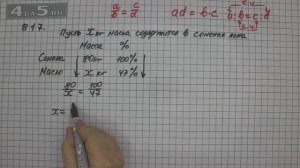 4 DA 5 RU
a/b = c/d ad = b·c a:b=c:d
847. Пусть x кг масла содержится в семенах льна.
Масса %
Семена 80кг 100%
Масло x кг 47%
80/x = 100/47
x=